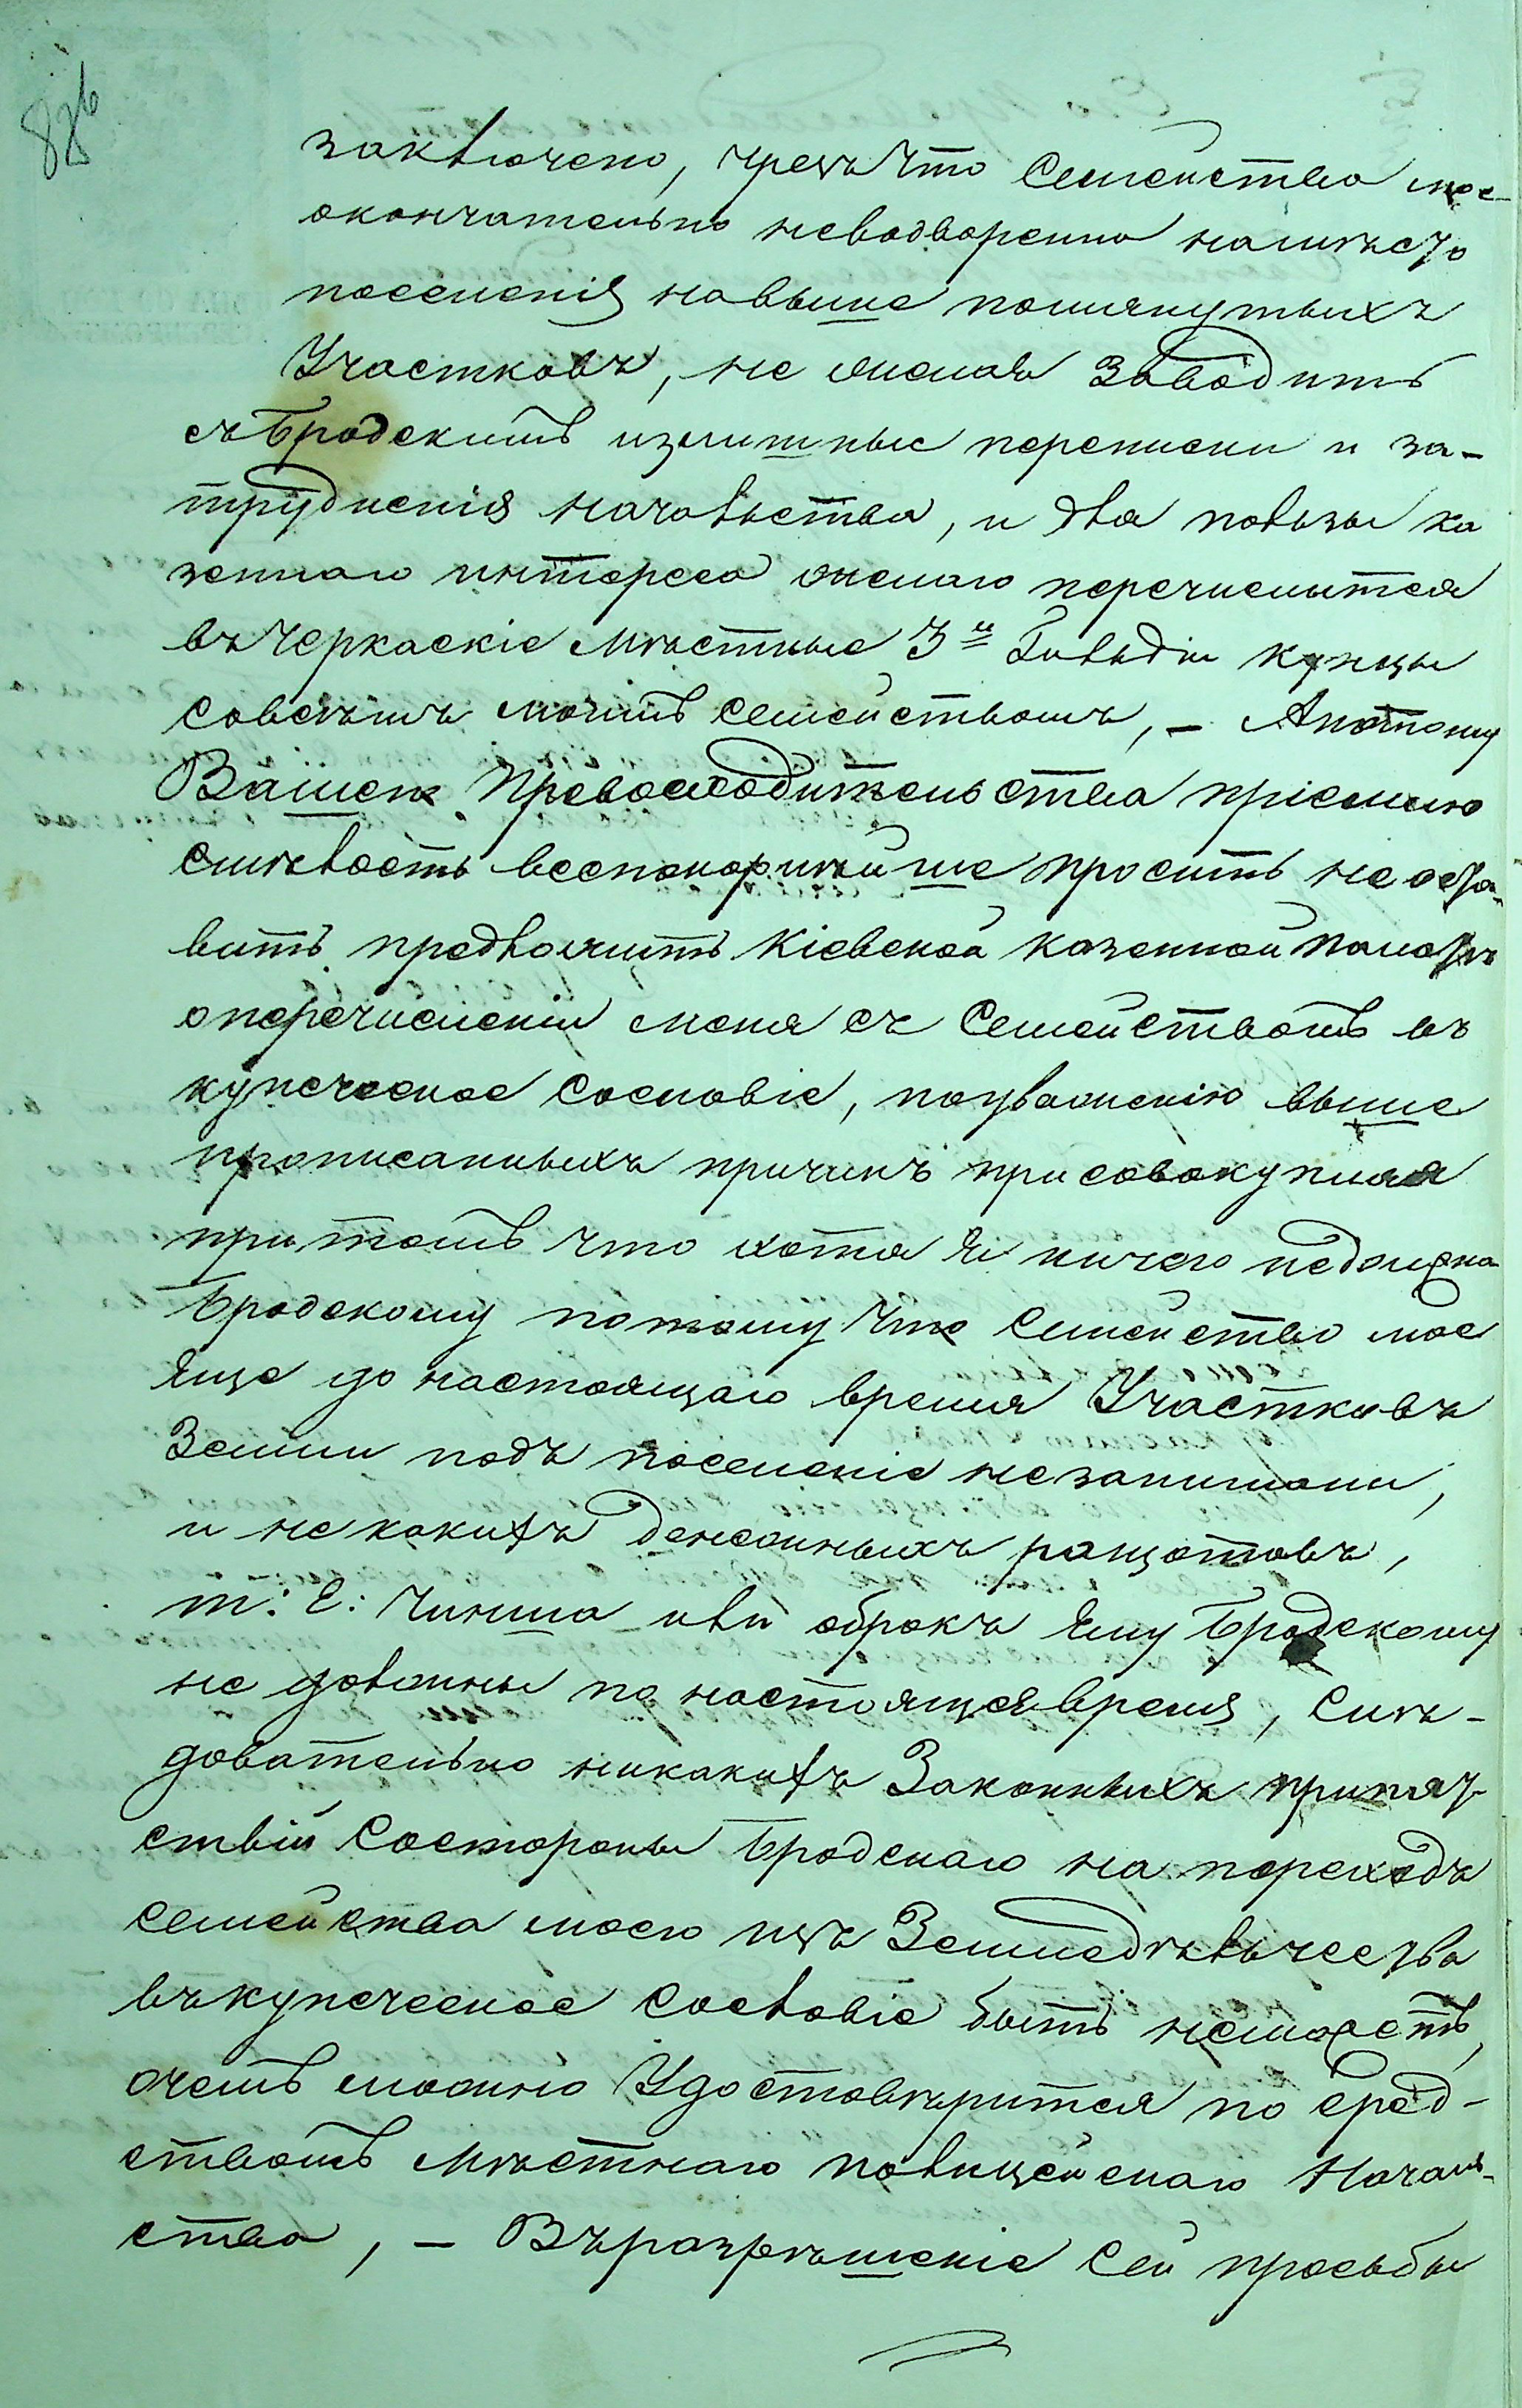 88б
заключено, чрезъ что Семейство мое
окончательно неводворенно наместо
поселенія навыше помянутыхъ
Участковъ, не желая Заводить
съ Бродскимъ излишные переписки и за-
трудненія начальства, и для пользы ка
зеннаго интереса желаю перечислится
въ Черкаскіе местные 3й Гильдіи купцы
совсемъ моимъ семействомъ, – Апотому
Вашей Превосходительства пріемлю
смелость всепокорнейше просить не оста-
вить предложить Кіевской казенной палате
оперечисленіи меня съ Семействомъ въ
купеческое Сословіе, поуваженію выше
прописанныхъ причинъ присовокупляя
притомъ что хотя я ничего недолжна
Бродскому потому что Семейство мое
Еще до настоящаго время Участковъ
Земли подъ поселеніе незанимали,
и не какихъ денежныхъ ращотовъ,
т: е: Чинша или оброкъ Ему Бродскому
не должны по настоящея время, Сле-
довательно никакихъ Законныхъ припят-
ствій Состороны Бродскаго на переходъ
Семейства моего изъ Земледельчества
въ купеческое Сословіе быть неможетъ,
очемъ можно Удостоверится по сред-
ствомъ местнаго полицейскаго Началь-
ства, – Въ разрешеніе Сей просьбы